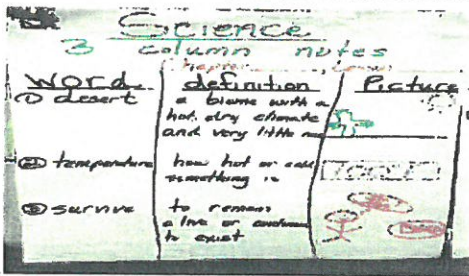 Science
3 column notes
Chapter Lesson
word definition Picture
① desert
a biome with a
hot, dry climate
and very little
② temperature
how hot or cold
something is
③ survive
to remain
alive or continue
to exist